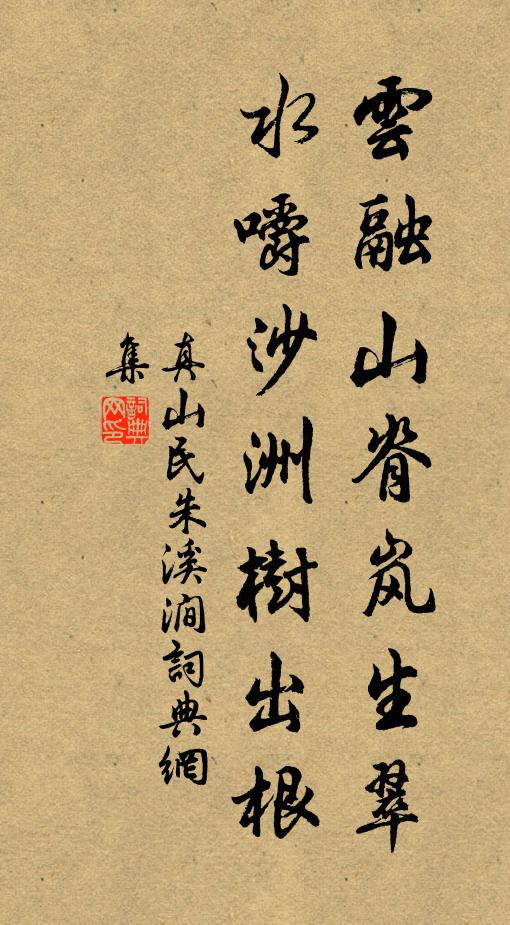 雲融山脊岚生翠
水嚼沙洲樹出根
真山民朱溪澗詞典網
集
詞典網印